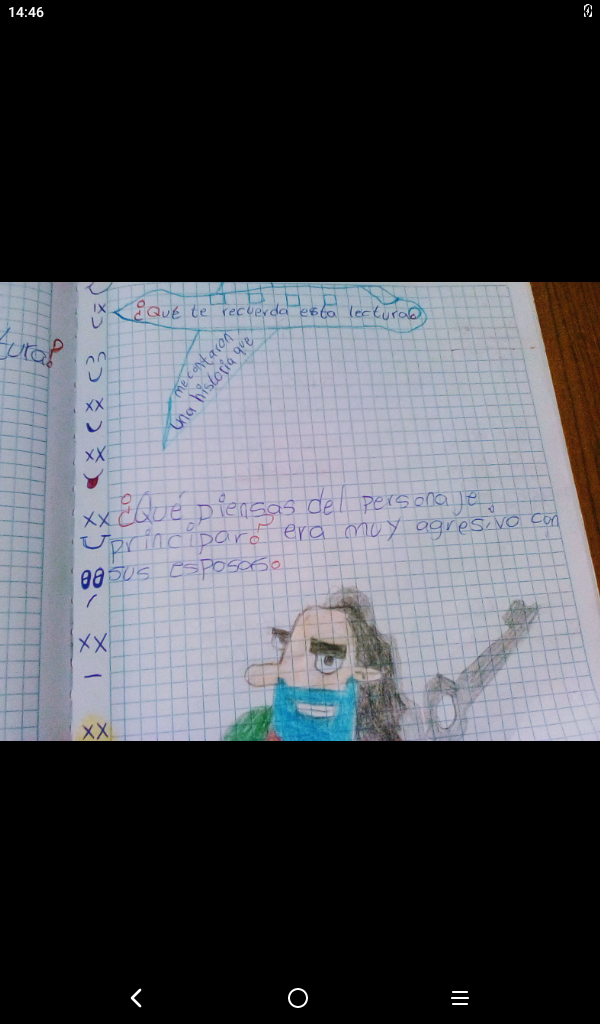 14:46
tura?
¿Qué te recuerda esta lectura?
me contaron
una historia que
¿Qué piensas del personaje
principar? era muy agresivo con
sus esposas.
xx
xx
xx
xx
xx